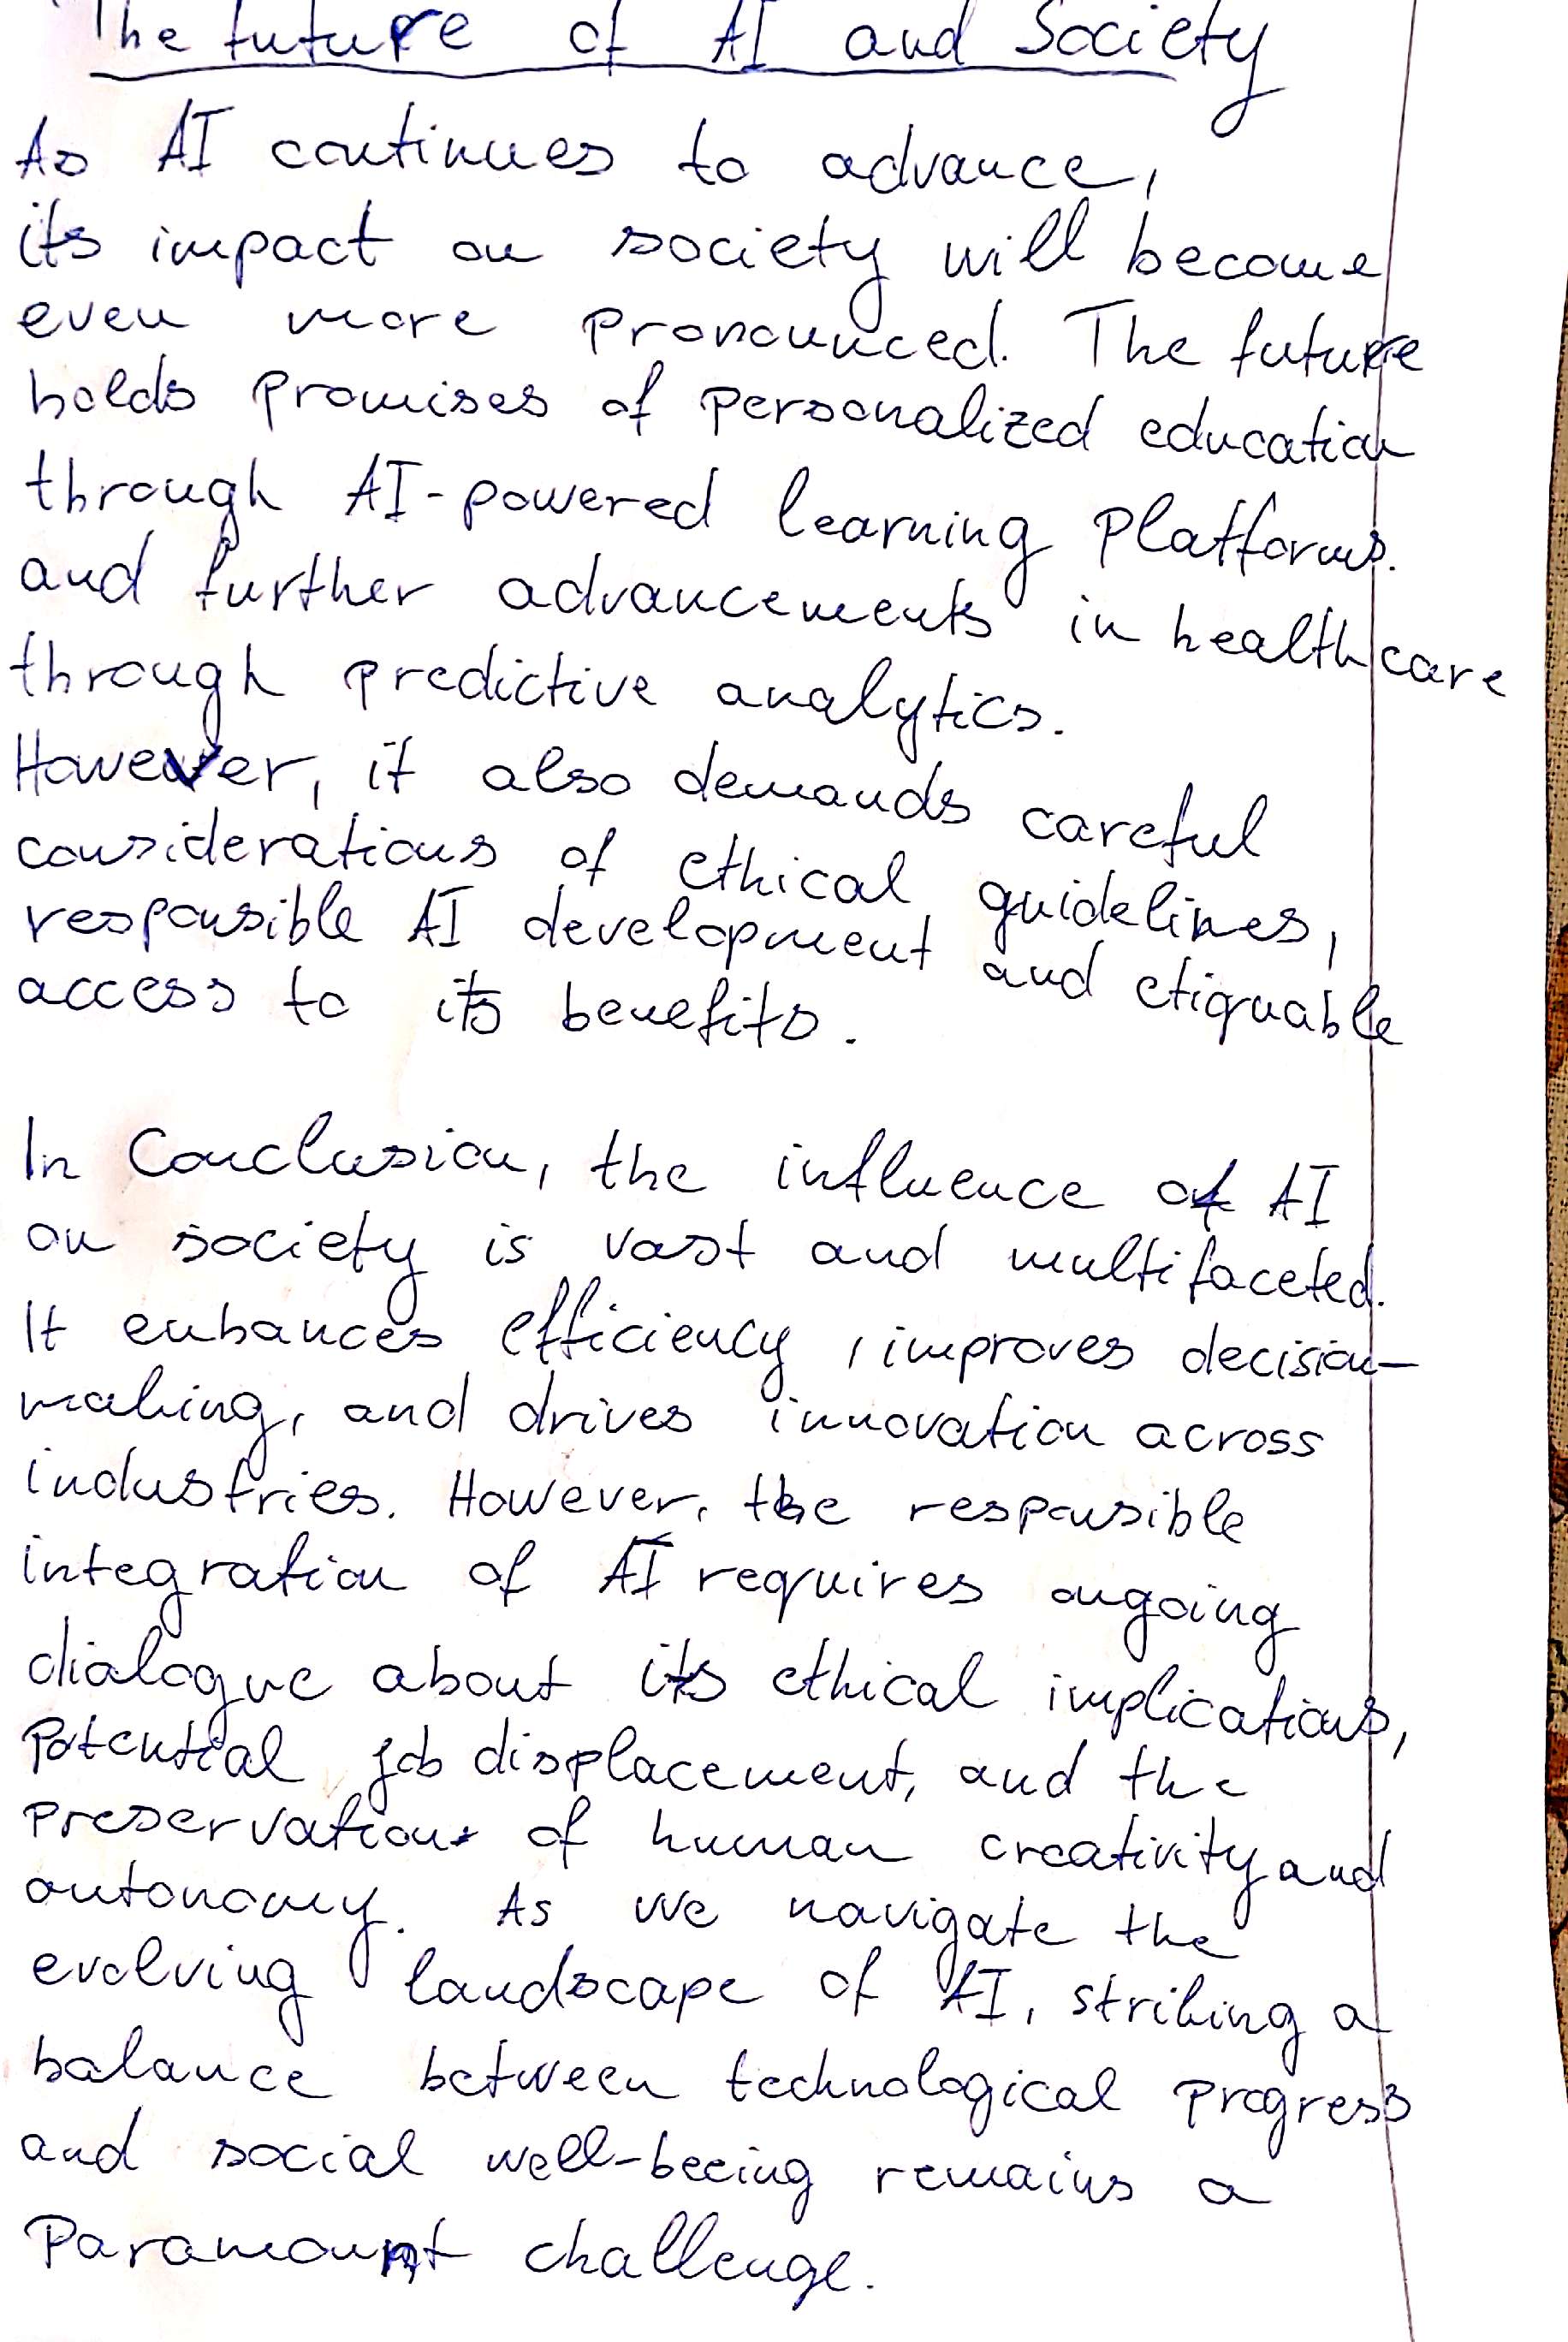 The future of AI and Society
As AI continues to advance,
its impact on society will become
even more pronounced. The future
holds promises of personalized education
through AI-powered learning platforms.
and further advancements in healthcare
through predictive analytics.
However, it also demands careful
considerations of ethical guidelines,
responsible AI development and etiquable
access to its benefits.
In Conclusion, the influence of AI
on society is vast and multifaceted.
It enhances efficiency, improves decision-
making, and drives innovation across
industries. However, the responsible
integration of AI requires ongoing
dialogue about its ethical implications,
Potential job displacement, and the
preservation of human creativity and
autonomy. As we navigate the
evolving landscape of AI, striking a
balance between technological progress
and social well-beeing remains a
Paramount challenge.